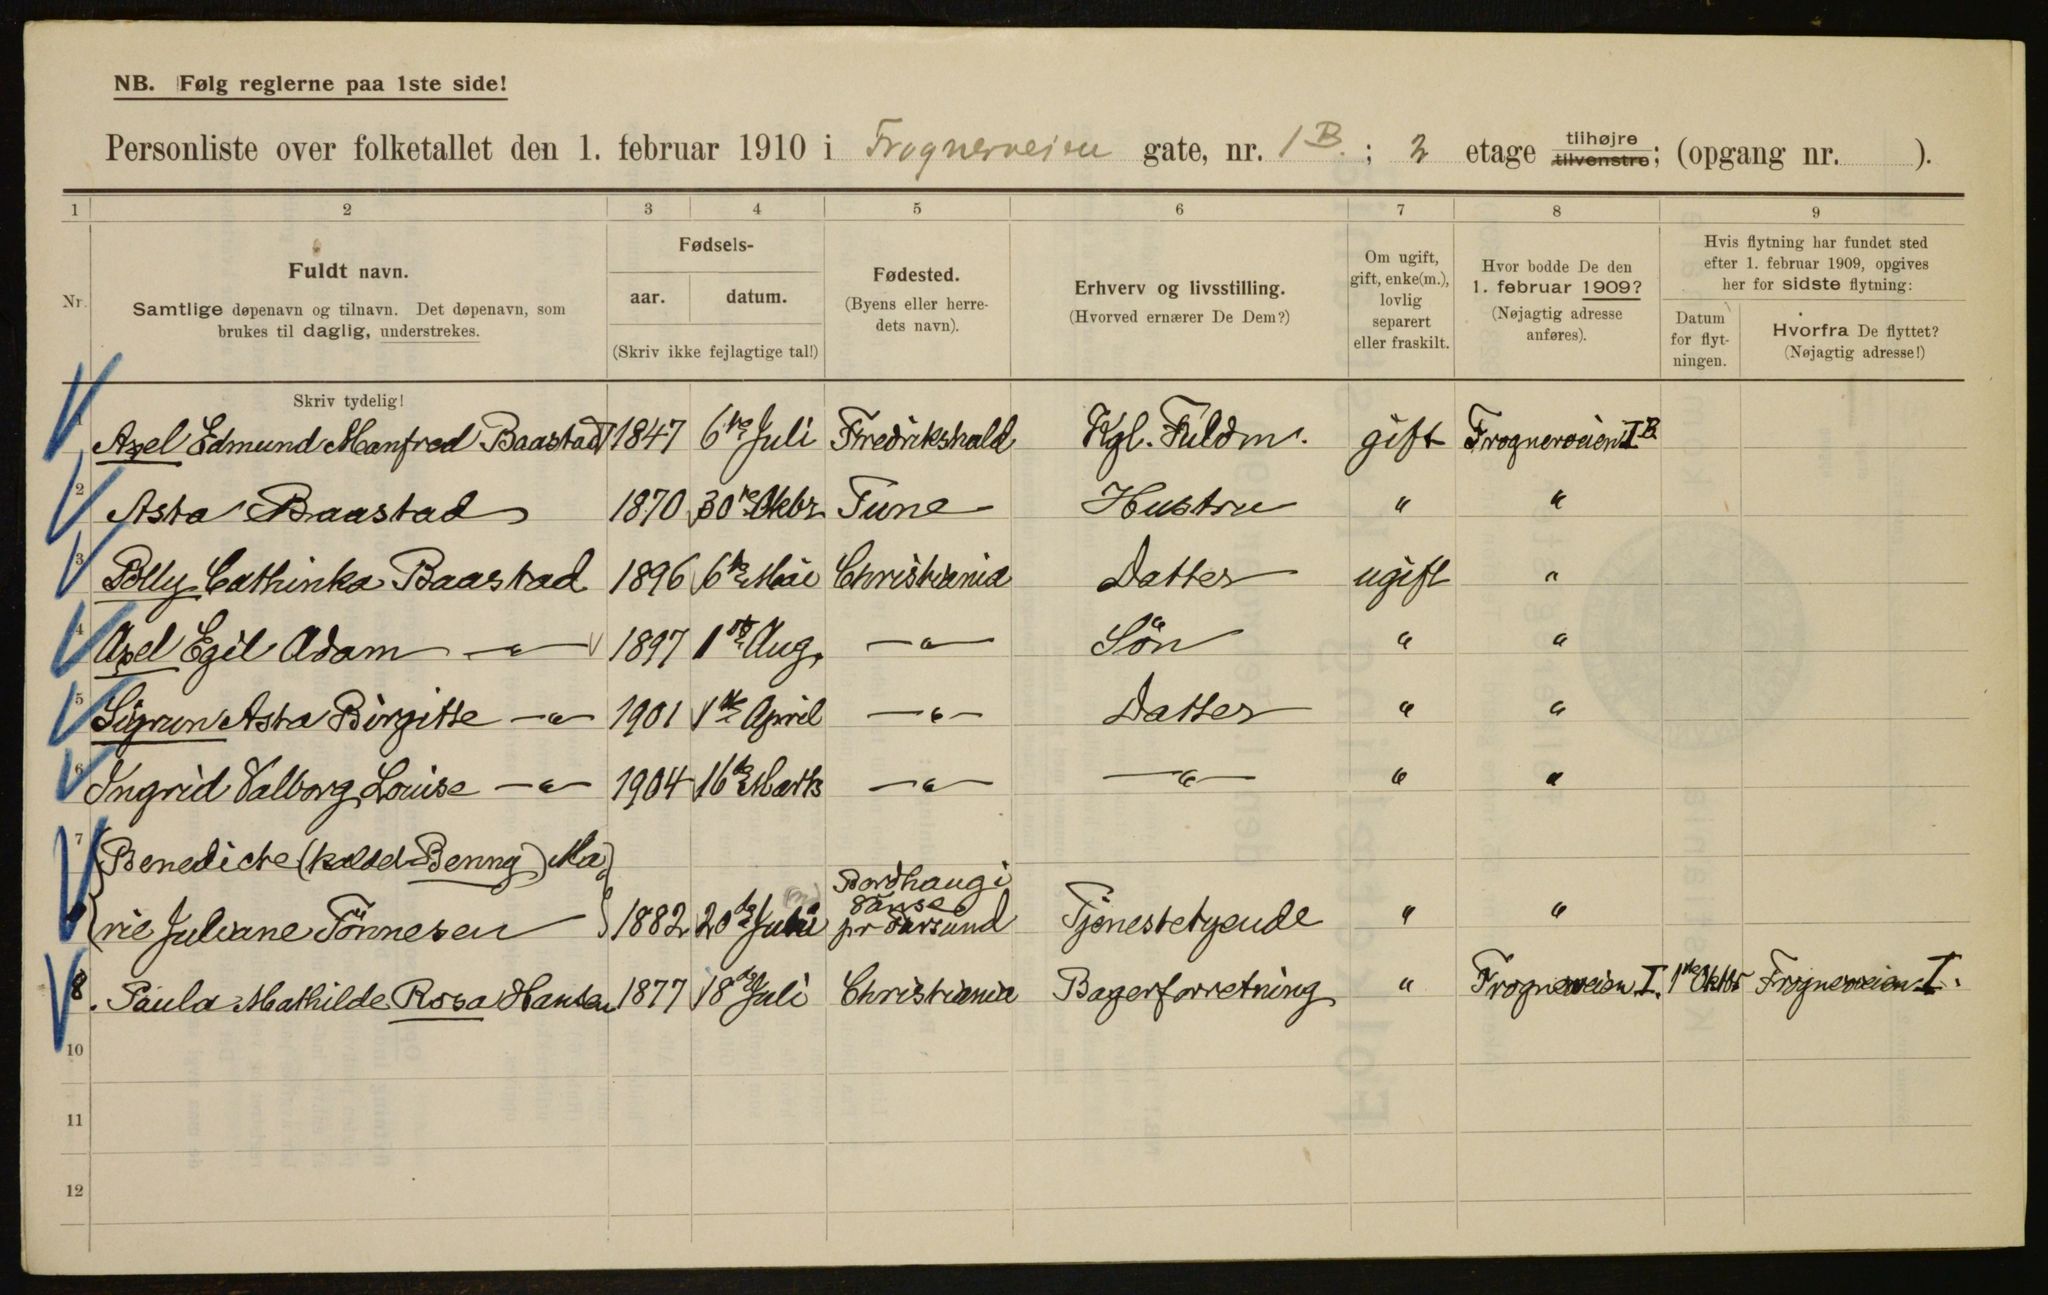 NB. Følg reglerne paa 1ste side!
Personliste over folketallet den 1. februar 1910 i Frognerveien gate, nr. 1B.; 2 etage tilhøjre tilvenstre; (opgang nr. ).
1 2 3 4 5 6 7 8 9
Nr.
Fuldt navn.
Samtlige døpenavn og tilnavn. Det døpenavn, som
brukes til daglig, understrekes.
Fødsels-
aar. datum.
(Skriv ikke fejlagtige tal!)
Fødested.
(Byens eller herre-
dets navn).
Erhverv og livsstilling.
(Hvorved ernærer De Dem?)
Om ugift,
gift, enke(m.),
lovlig
separert
eller fraskilt.
Hvor bodde De den
1. februar 1909?
(Nøjagtig adresse
anføres).
Hvis flytning har fundet sted
efter 1. februar 1909, opgives
her for sidste flytning:
Datum
for flyt-
ningen.
Hvorfra De flyttet?
(Nøjagtig adresse!)
Skriv tydelig!
1 Axel Edmund Manfred Baastad 1847 6te Juli Fredrikshald Kgl. Fuldm. gift Frognerveien I B
2 Asta Baastad 1870 30te Oktbr Tune Hustru " "
3 Polly Cathinka Baastad 1896 6te Mai Christiania Datter ugift "
4 Axel Egil Adam —"— 1897 1ste Aug. —"— Sön " "
5 Sigrun Asta Birgitte —"— 1901 1ste April —"— Datter " "
6 Ingrid Valborg Louise —"— 1904 16de Marts —"— —"— " "
7 Benedicte (kaldet Benny) Ma-
rie Juliane Tönnesen 1882 20de Bordhaug i
Vanse
pr Farsund Tjenestetyende " "
8. Paula Mathilde Rosa Hansen 1877 18de Juli Christiania Bagerforretning " Frognerveien I. 1ste Oktbr Frognerveien I.
10
11
12